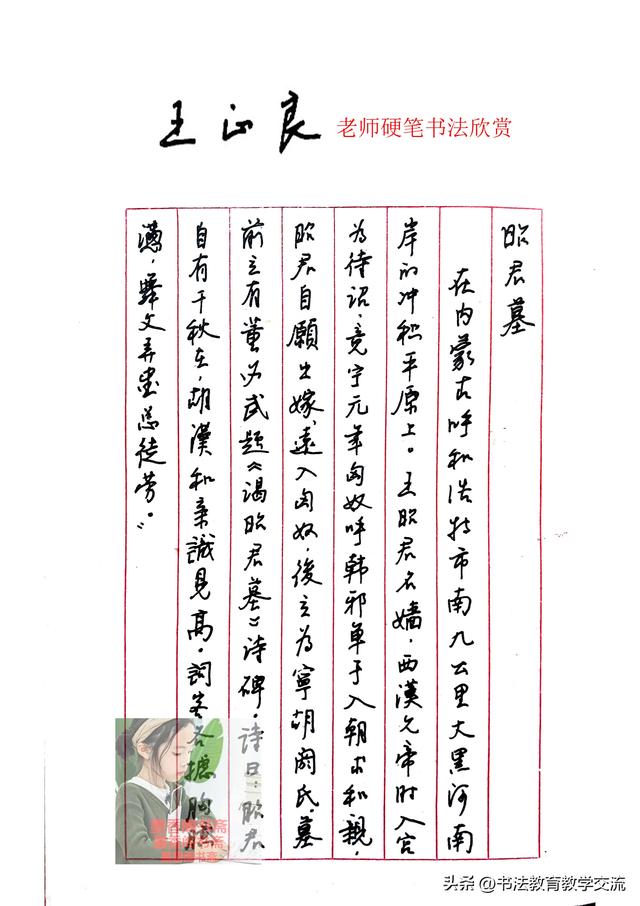 王正良 老师硬笔书法欣赏
昭君墓
在内蒙古呼和浩特市南九公里大黑河南
岸的冲积平原上。王昭君名嫱，西漢元帝时入宫
为待诏，竟宁元年匈奴呼韩邪单于入朝求和親，
昭君自願出嫁，遠入匈奴，後立为寧胡阏氏。墓
前立有董必武题《谒昭君墓》诗碑。诗曰：昭君
自有千秋在，胡漢和亲識見高，詞客各攄胸臆
懑，舞文弄墨总徒劳。”
头条 @书法教育教学交流